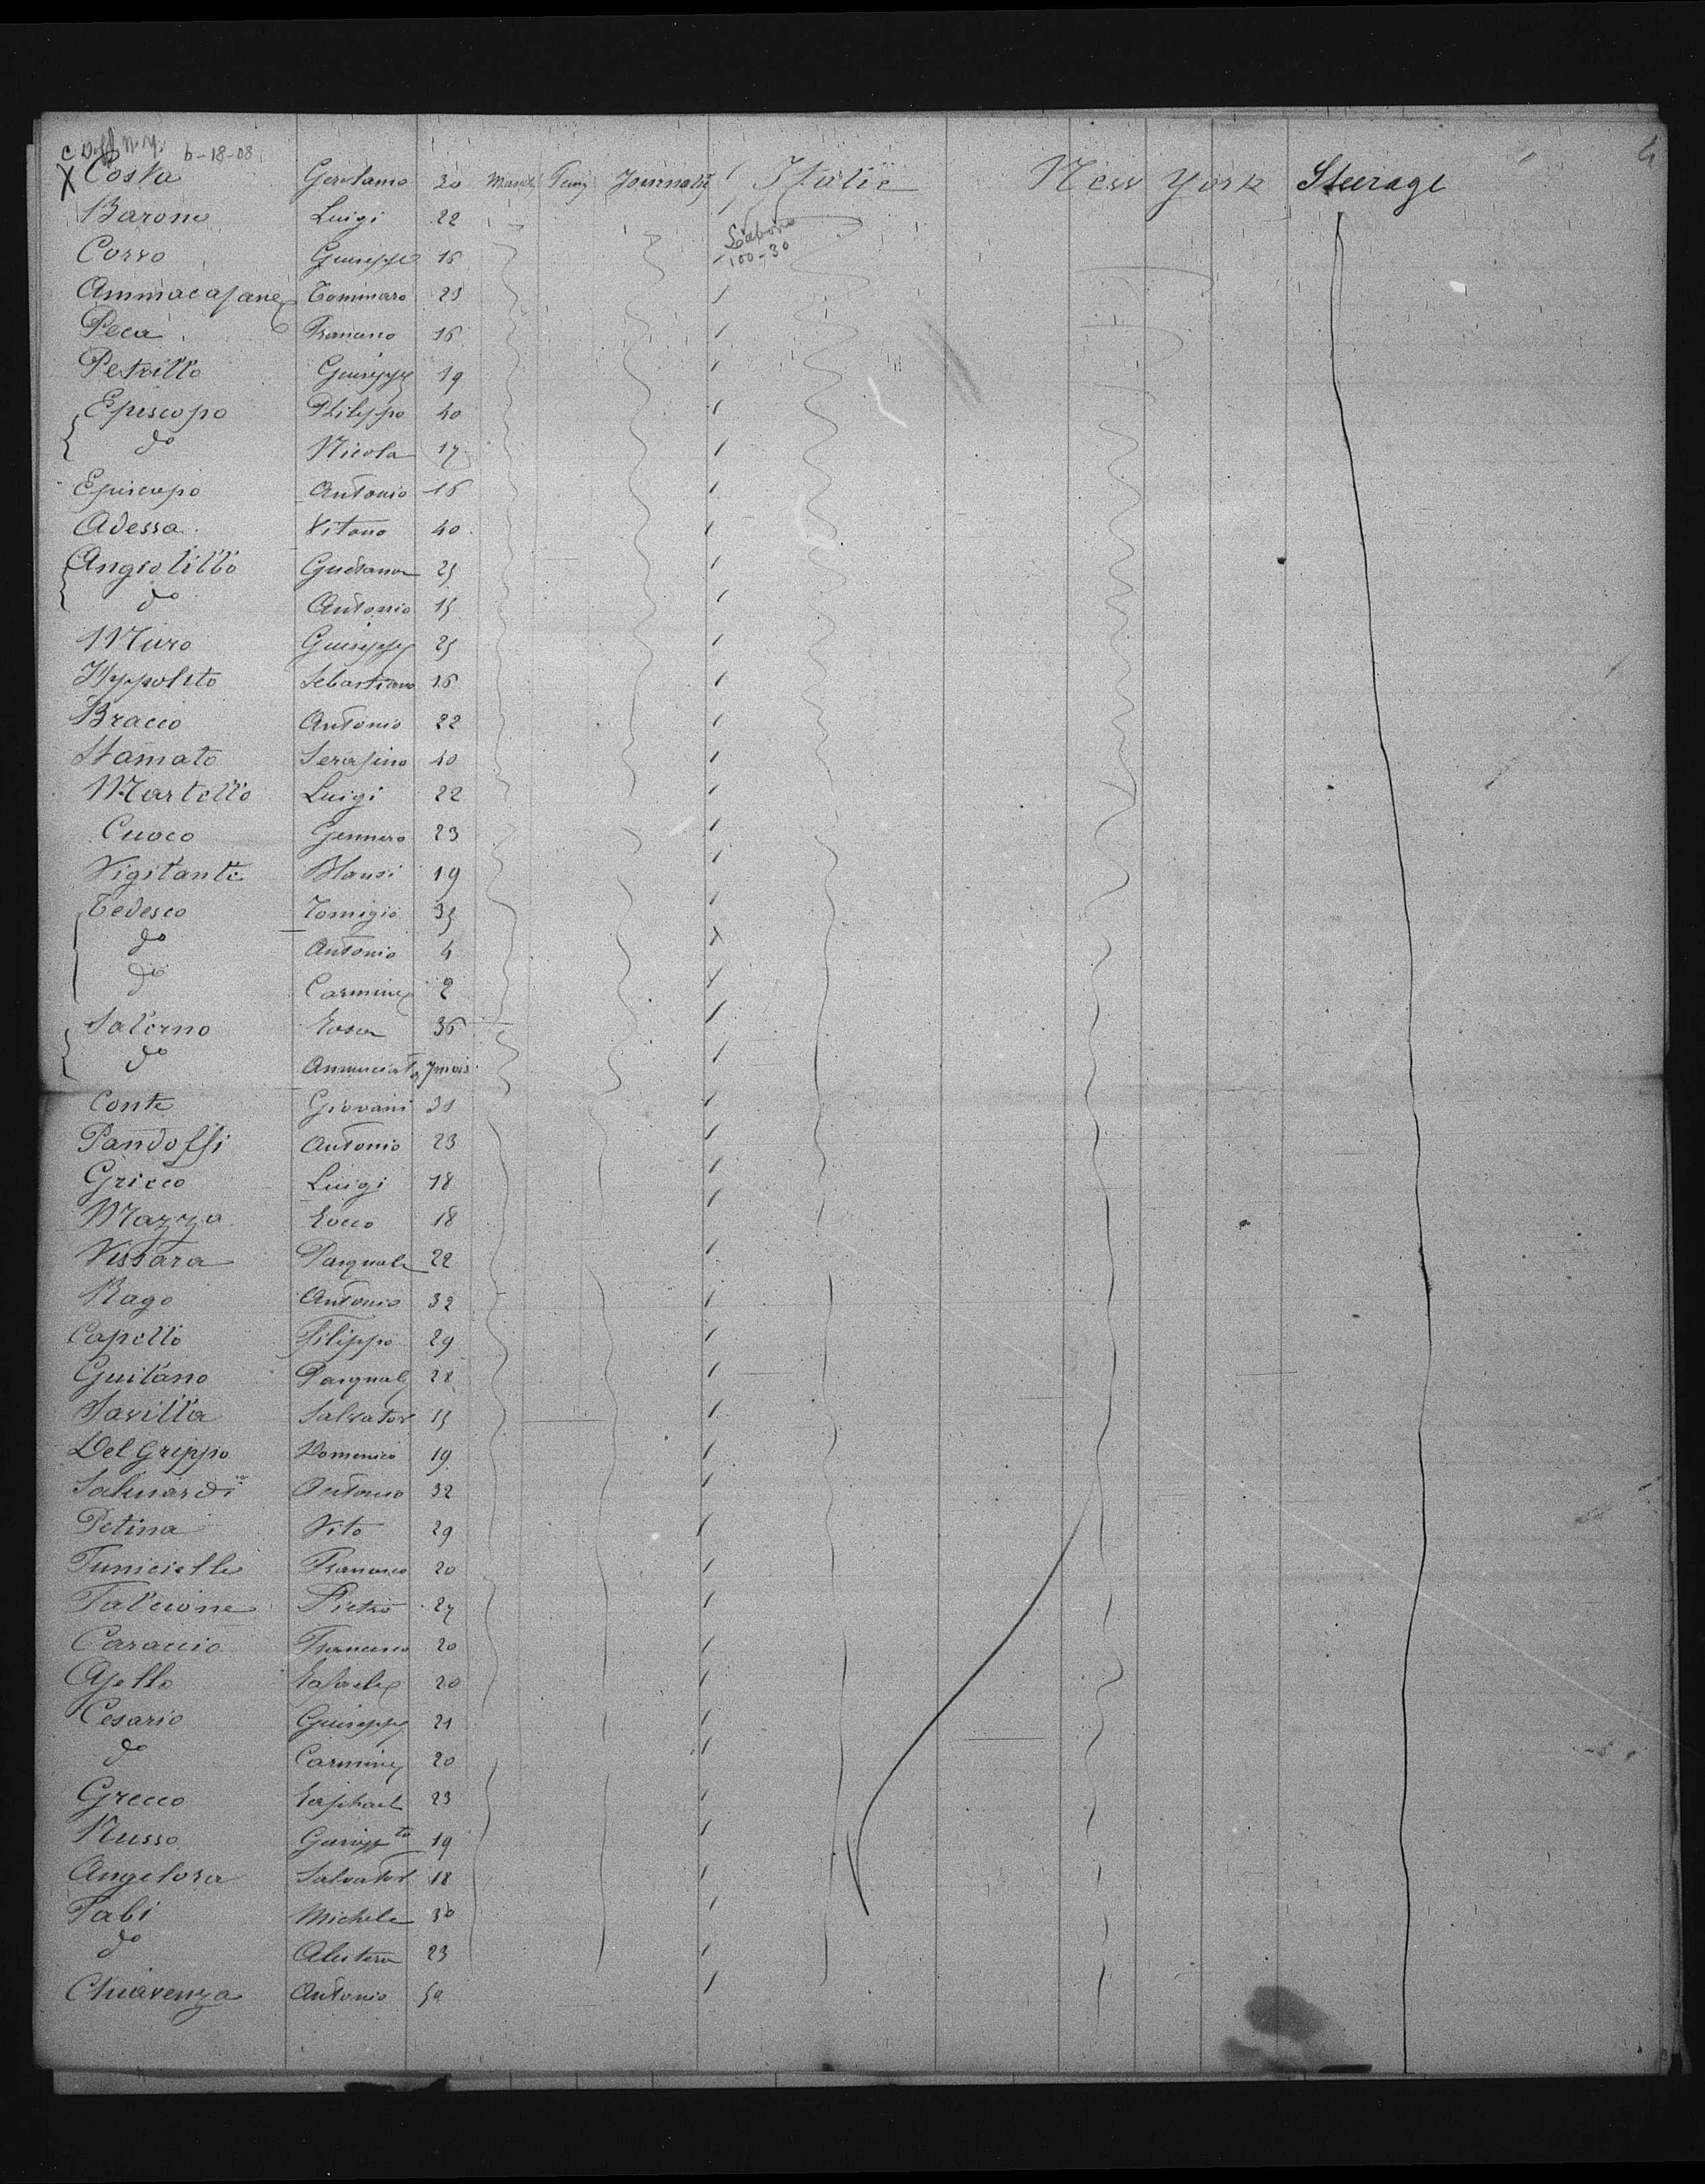 C Off N.Y. 6-18-08
X Costa Gerolamo 20 Journalier Italie New York Steerage
Barone Luigi 22
Labore
100-30
Corvo Guiseppe 16
Ammacapane Tommaro 23
Peca Francesco 16
Petrillo Guiseppe 19
Episcopo Philippo 40
do Nicola 17
Episcopo Antonio 16
Adessa Vitano 40
Angiolillo 25
do Antonio 15
Muro Guiseppe 25
Hyppolito Sebastiano 36
Bracco Antonio 22
Stamato Serafino 40
Martello Luigi 22
Cuoco Gennaro 23
Vigilante Blausi 19
Tedesco 35
do Antonio 4
do Carmine 2
Salerno Rosa 36
do Annunciata 7 mois
Conte Giovani 31
Pandolfi Antonio 23
Gricco Luigi 18
Mazza Rocco 18
Vissara Pasquale 22
Rago Antonio 32
Capello Filippo 29
Guilano Pasquale 28
Savilla Salvator 15
Del Grippo Domenico 19
Antonio 32
Petina Vito 29
Funicielle Francesco 20
Falcione Pietro 27
Caraccio Francesco 20
Ajello Rafaele 20
Cesario Guiseppe 21
do Carmine 20
Grecco Raphael 23
Russo 19
Angelora Salvator 18
Fabi Michele 30
do 23
Chiavenza Antonio 50